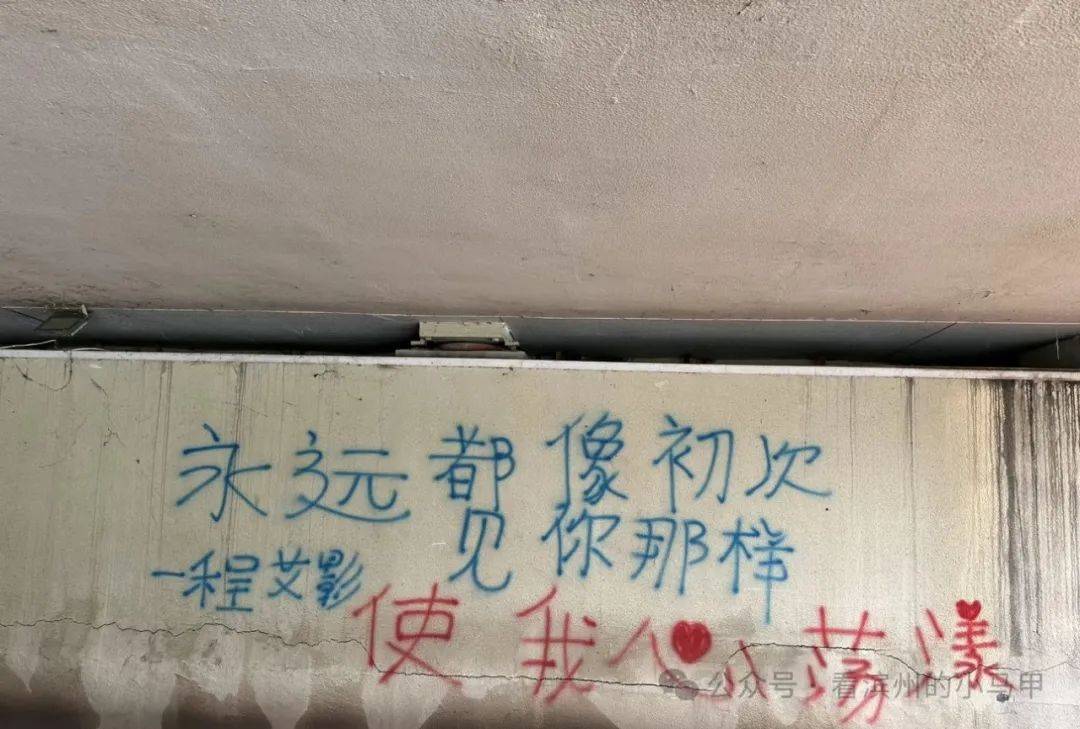 永远都像初次
见你那样
一程艾影
使我心荡漾
公众号 看滨州的小马甲